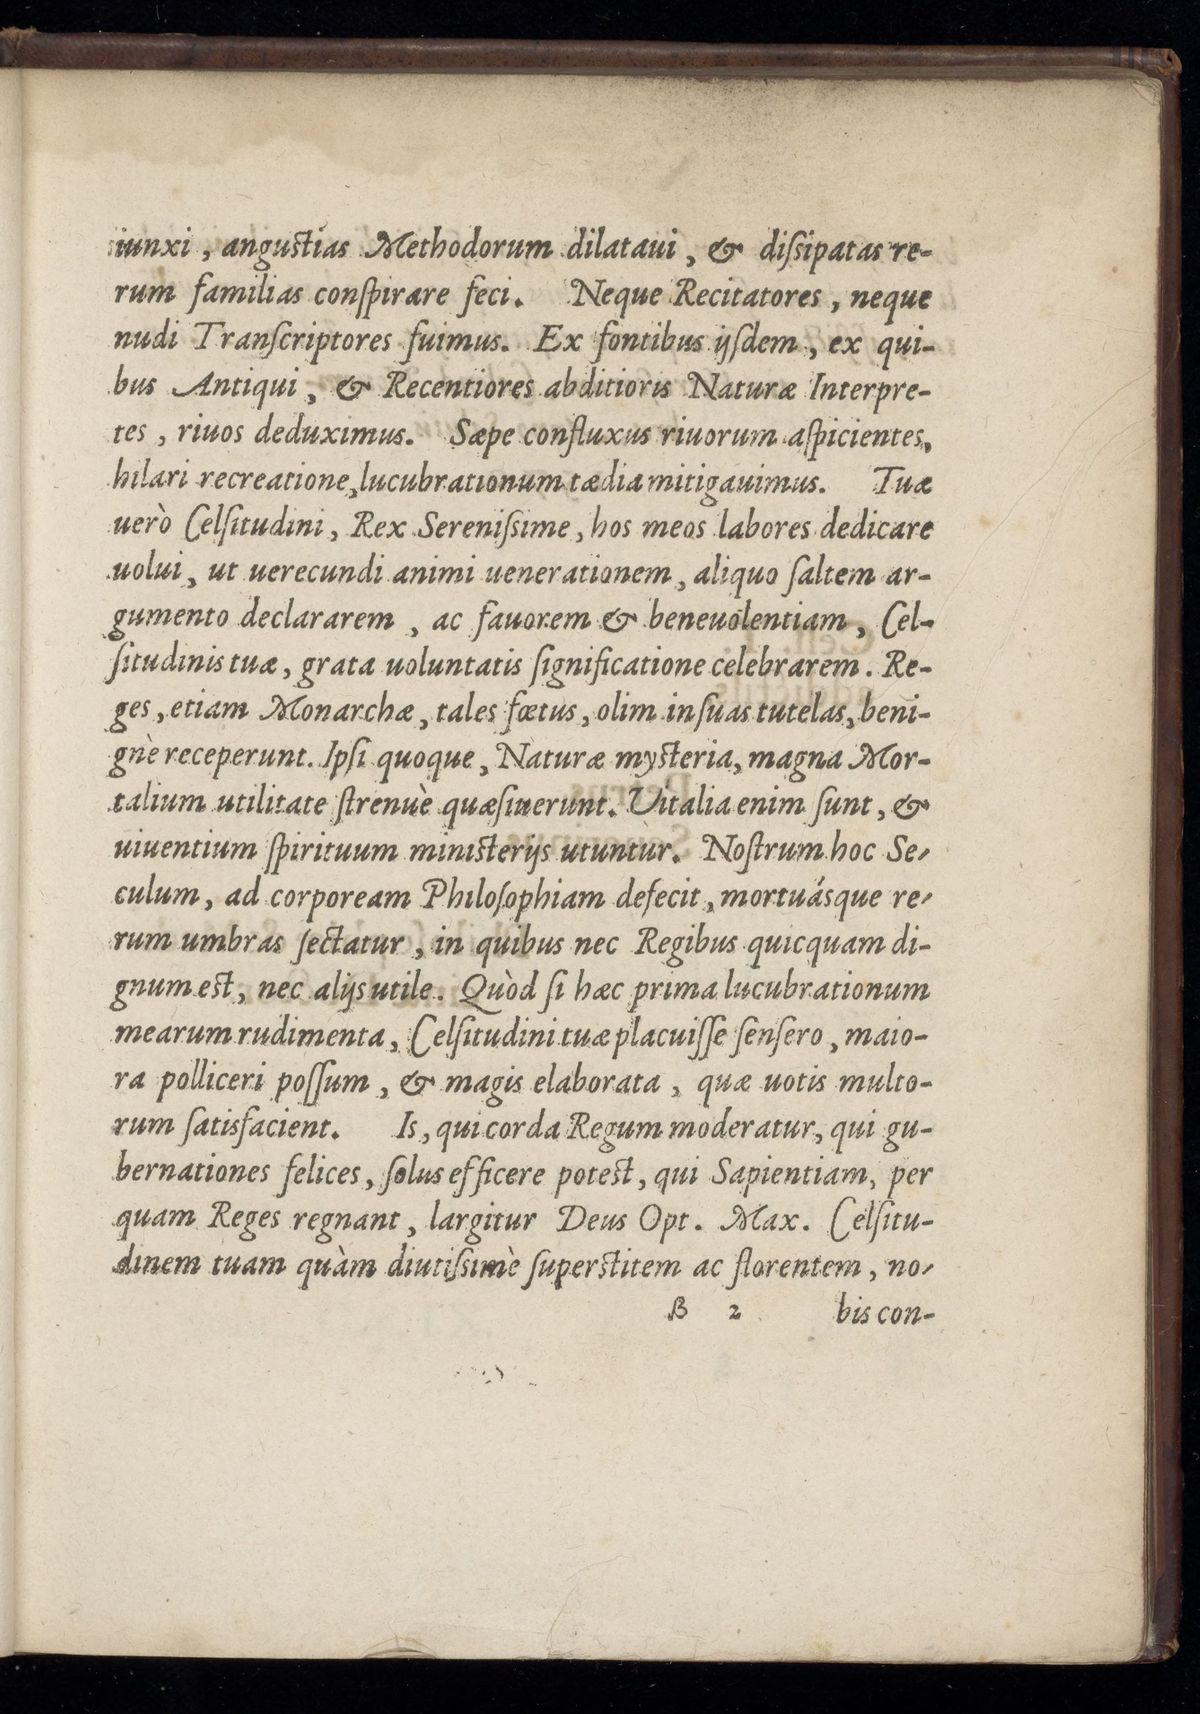 iunxi, angustias Methodorum dilataui, & diſsipatas re-
rum familias conſpirare feci. Neque Recitatores, neque
nudi Tranſcriptores fuimus. Ex fontibus ijſdem, ex qui-
bus Antiqui, & Recentiores abditioris Naturæ Interpre-
tes, riuos deduximus. Sæpe confluxus riuorum aſpicientes,
hilari recreatione, lucubrationum tædia mitigauimus. Tuæ
uerò Celſitudini, Rex Sereniſsime, hos meos labores dedicare
uolui, ut uerecundi animi uenerationem, aliquo ſaltem ar-
gumento declararem, ac fauorem & beneuolentiam, Cel-
ſitudinis tuæ, grata uoluntatis ſignificatione celebrarem. Re-
ges, etiam Monarchæ, tales fœtus, olim in ſuas tutelas, beni-
gnè receperunt. Ipſi quoque, Naturæ mysteria, magna Mor-
talium utilitate ſtrenuè quæſiuerunt. Vitalia enim ſunt, &
uiuentium ſpirituum ministerijs utuntur. Noſtrum hoc Se-
culum, ad corpoream Philoſophiam defecit, mortuásque re-
rum umbras ſectatur, in quibus nec Regibus quicquam di-
gnum est, nec alijs utile. Quòd ſi hæc prima lucubrationum
mearum rudimenta, Celſitudini tuæ placuiſſe ſenſero, maio-
ra polliceri poſſum, & magis elaborata, quæ uotis multo-
rum ſatisfacient. Is, qui corda Regum moderatur, qui gu-
bernationes felices, ſolus efficere potest, qui Sapientiam, per
quam Reges regnant, largitur Deus Opt. Max. Celſitu-
dinem tuam quàm diutiſsimè ſuperstitem ac florentem, no-
B 2 bis con-